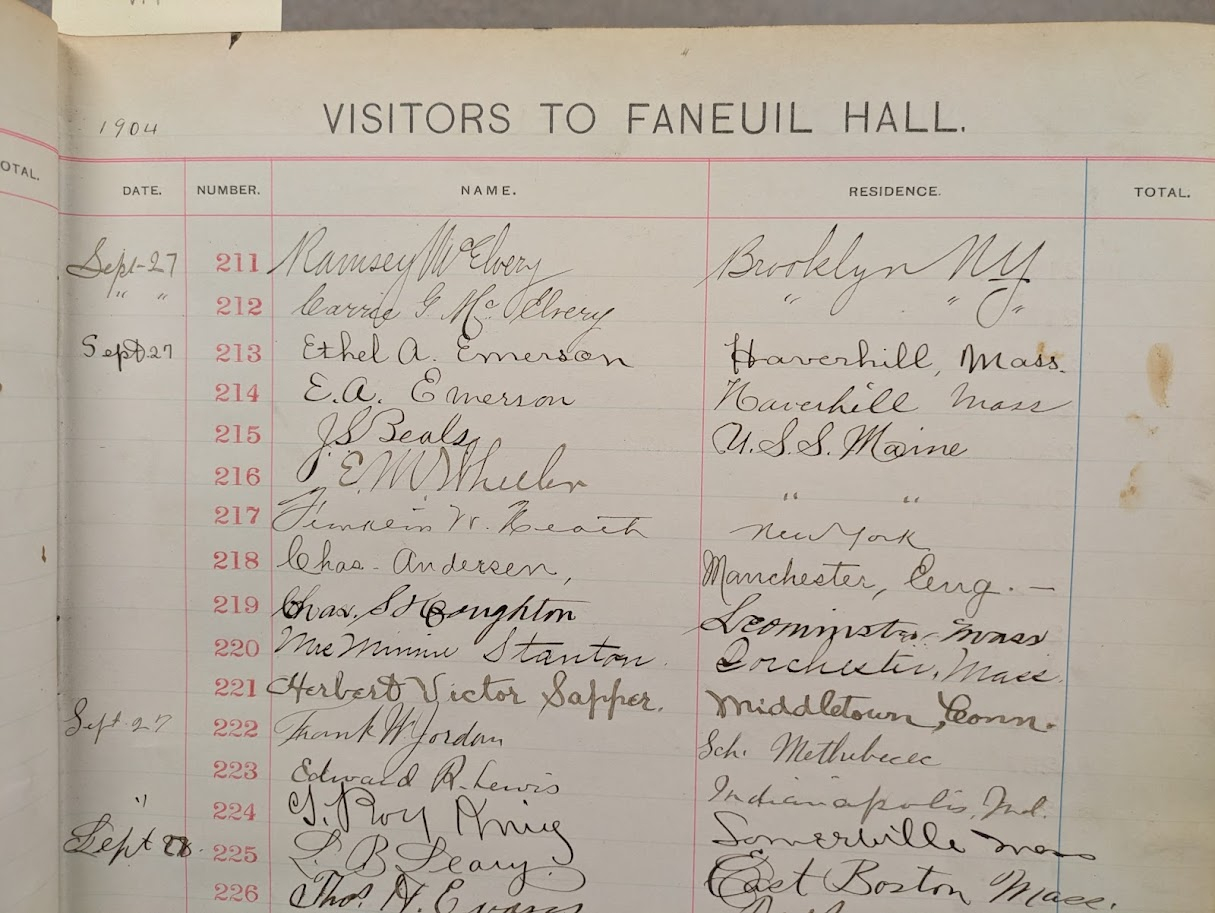 OTAL.
1904 VISITORS TO FANEUIL HALL.
DATE. NUMBER. NAME. RESIDENCE. TOTAL.
Sept-27 211 Ramsey McElvery Brooklyn NY
" " 212 Carrie G McElvery " " "
Sept 27 213 Ethel A. Emerson Haverhill, Mass.
214 E.A. Emerson Haverhill Mass
215 J S Beals U.S.S. Maine
216 E.M. Wheeler " "
217 W. Heath New York
218 Chas. Andersen, Manchester, Eng. —
219 Chas. S Houghton Leominster Mass
220 Mrs Minnie Stanton. Dorchester, Mass.
221 Herbert Victor Sapper. Middletown, Conn.
Sept 27 222 Frank W Jordan Sch. Methebecec
223 Edward R. Lewis Indianapolis, Ind.
" 224 Roy King Somerville Mass
Sept 225 L B Leary. East Boston Mass.
226 Thos. H. Evans